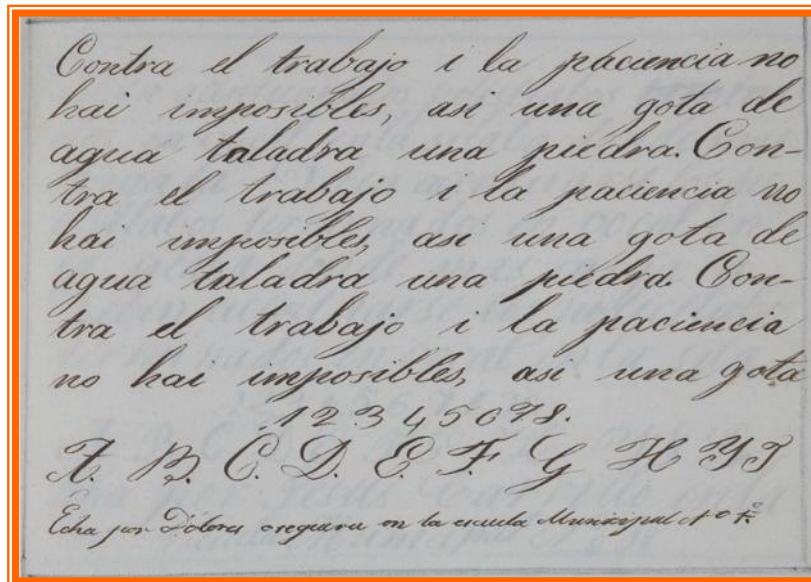 Contra el trabajo i la paciencia no
hai imposibles, asi una gota de
agua taladra una piedra. Con-
tra el trabajo i la paciencia no
hai imposibles, asi una gota de
agua taladra una piedra. Con-
tra el trabajo i la paciencia
no hai imposibles, asi una gota
1 2 3 4 5 6 7 8.
A. B. C. D. E. F. G H Y J
Echa por Dolores oseguera en la escuela Municipal No